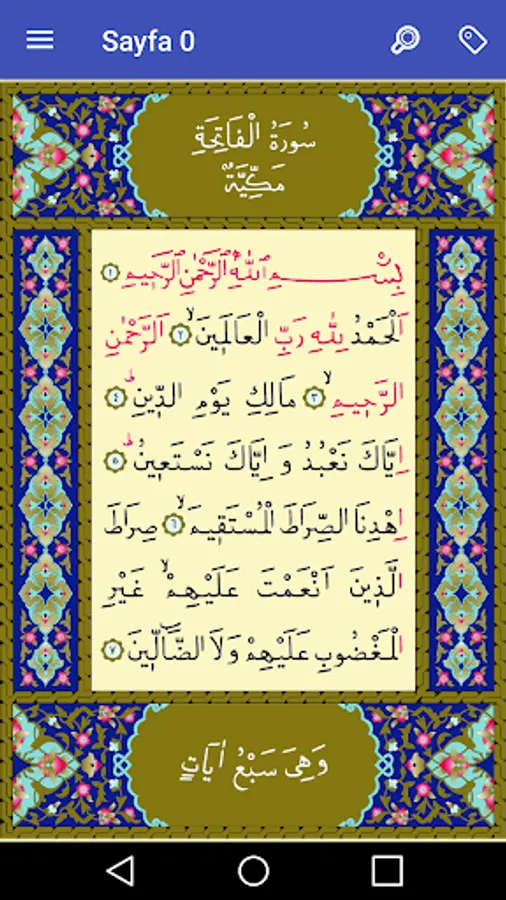 Sayfa 0
سُورَةُ الْفَاتِحَةِ
مَكِّيَّةٌ
بِسْمِ اللّٰهِ الرَّحْمٰنِ الرَّحِيمِ ١
اَلْحَمْدُ لِلّٰهِ رَبِّ الْعَالَمِينَۙ ٢ اَلرَّحْمٰنِ
الرَّحِيمِۙ ٣ مَالِكِ يَوْمِ الدِّينِۜ ٤
اِيَّاكَ نَعْبُدُ وَ اِيَّاكَ نَسْتَعِينُۜ ٥
اِهْدِنَا الصِّرَاطَ الْمُسْتَقِيمَۙ ٦ صِرَاطَ
الَّذِينَ اَنْعَمْتَ عَلَيْهِمْۙ غَيْرِ
الْمَغْضُوبِ عَلَيْهِمْ وَلَا الضَّٓالِّينَ ٧
وَهِىَ سَبْعُ اٰيَاتٍ